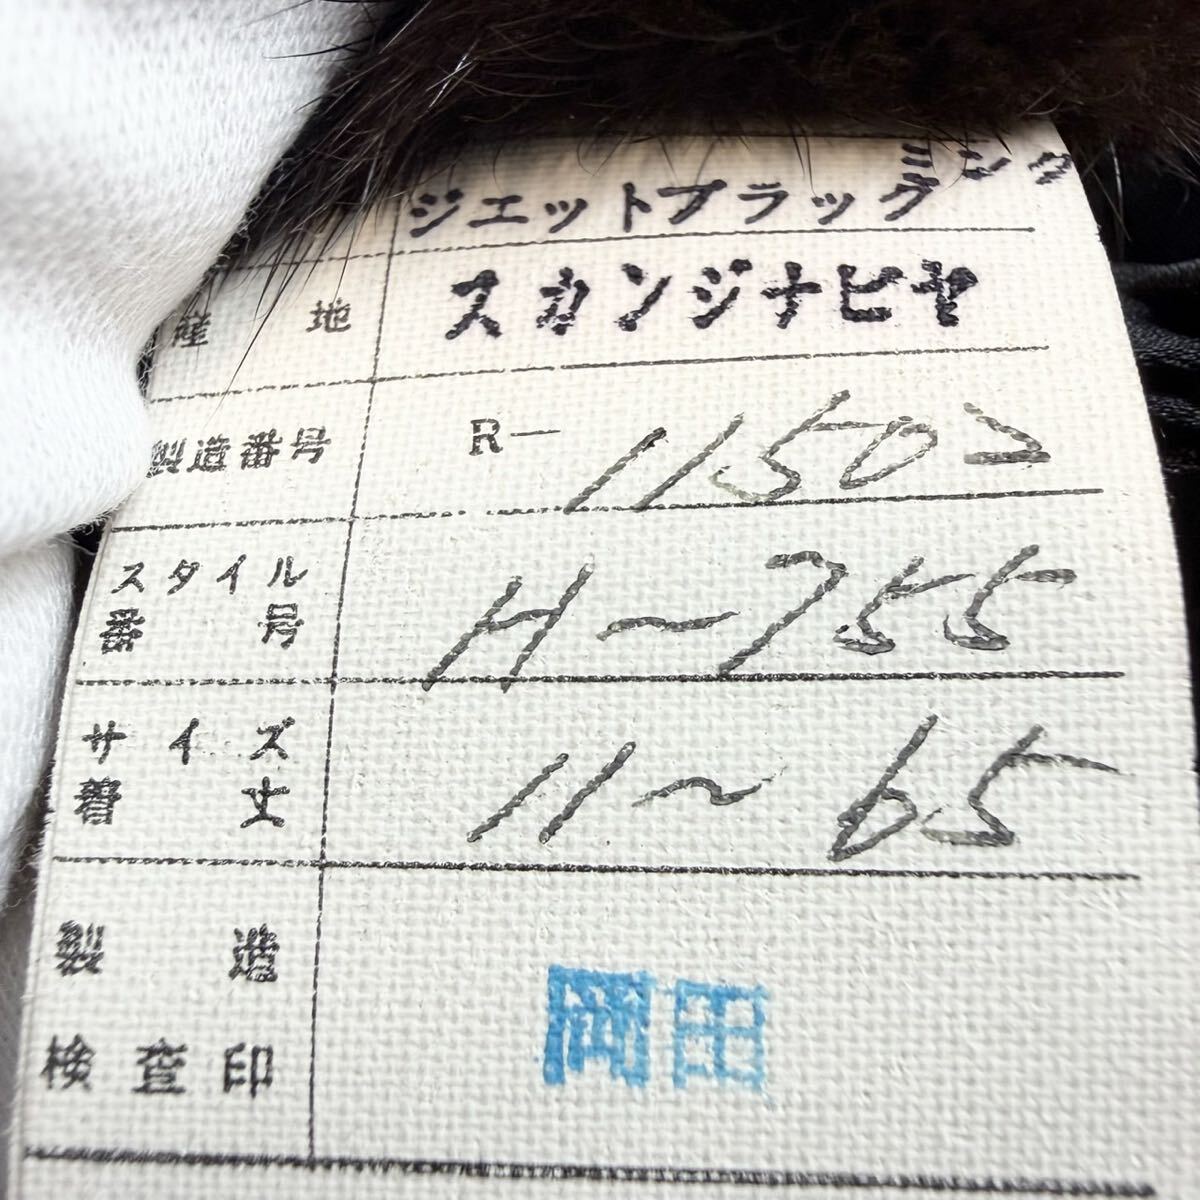 ミンク
ジエットブラック
産地 スカンジナビヤ
製造番号 R-11502
スタイル番号 H~755
サイズ着丈 11~65
製造検査印 岡田